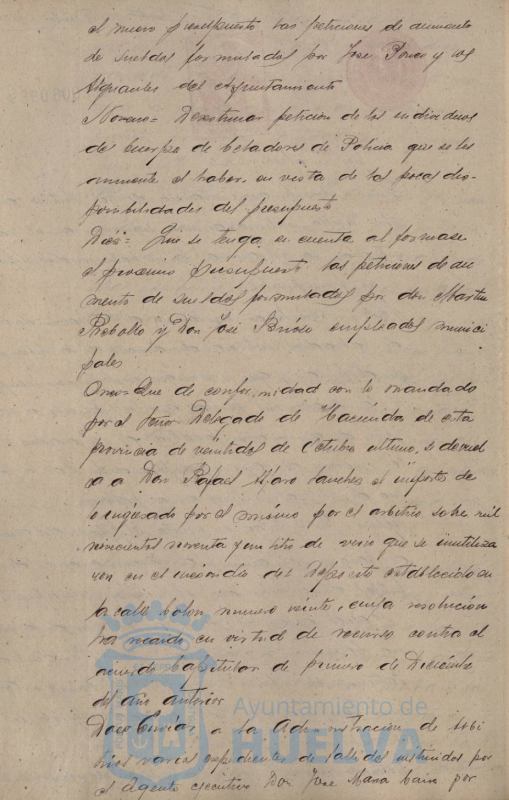 el nuevo presupuesto las peticiones de aumento
de sueldos formuladas por Jose Ponce y los
del Ayuntamiento
Noveno= Desestimar peticion de los individuos
del Cuerpo de Celadores de Policia que se les
aumente el haber, en vista de las pocas dis-
ponibilidades del presupuesto
Diez= Que se tenga en cuenta al formarse
el proximo presupuesto las peticiones de au
mento de sueldos formuladas por don Martin
Rebollo y Don José empleados munici
pales
Once Que de conformidad con lo mandado
por el Señor Delegado de Hacienda de esta
provincia de veintidos de Octubre ultimo, se devuel
va a Don Rafael Haro Sanchez el importe de
lo ingresado por el mismo por el arbitrio sobre mil
noventa y un litro de vino que se inutiliza
ron en el incendio del Deposito establecido en
la calle Colon numero veinte, cuya resolucion
ha recaido en virtud de recurso contra el
acuerdo Capitular de primero de Diciembre
del año anterior
Doce Enviar a la Administración de
varios expedientes de fallidos instruidos por
el Agente ejecutivo Don Jose Maria por
Ayuntamiento de
HUELVA